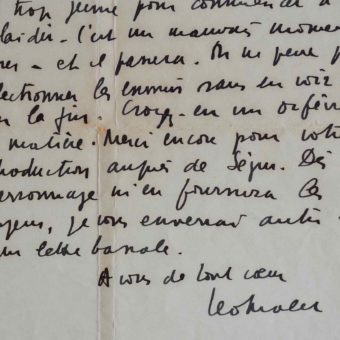 trop jeune pour commencer à
laider. C'est un mauvais momen
er - et il passera. On ne peut p
lectionner les ennuis sans en voir
la fin. Croyez-en un orfèvr
matière. Merci encore pour votr
roduction auprès de Ségur. Dès
ersonnage m'en fournira les
oyens, je vous enverrai autre
un lettre banale.
A vous de tout cœur